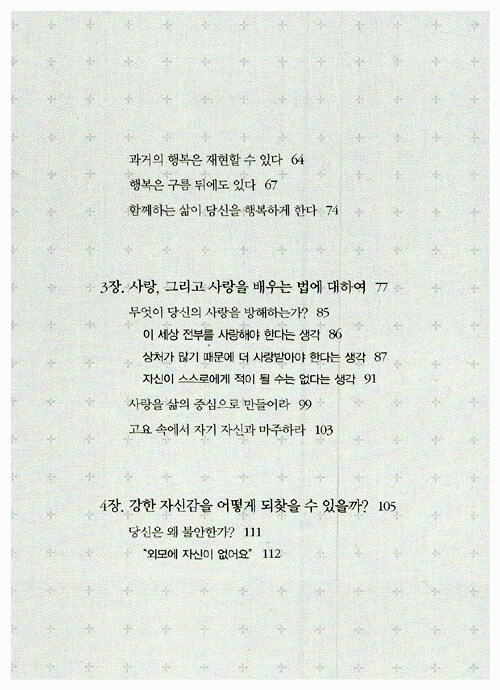 과거의 행복은 재현할 수 있다 64
행복은 구름 뒤에도 있다 67
함께하는 삶이 당신을 행복하게 한다 74
3장. 사랑, 그리고 사랑을 배우는 법에 대하여 77
무엇이 당신의 사랑을 방해하는가? 85
이 세상 전부를 사랑해야 한다는 생각 86
상처가 많기 때문에 더 사랑받아야 한다는 생각 87
자신이 스스로에게 적이 될 수는 없다는 생각 91
사랑을 삶의 중심으로 만들어라 99
고요 속에서 자기 자신과 마주하라 103
4장. 강한 자신감을 어떻게 되찾을 수 있을까? 105
당신은 왜 불안한가? 111
“외모에 자신이 없어요” 112